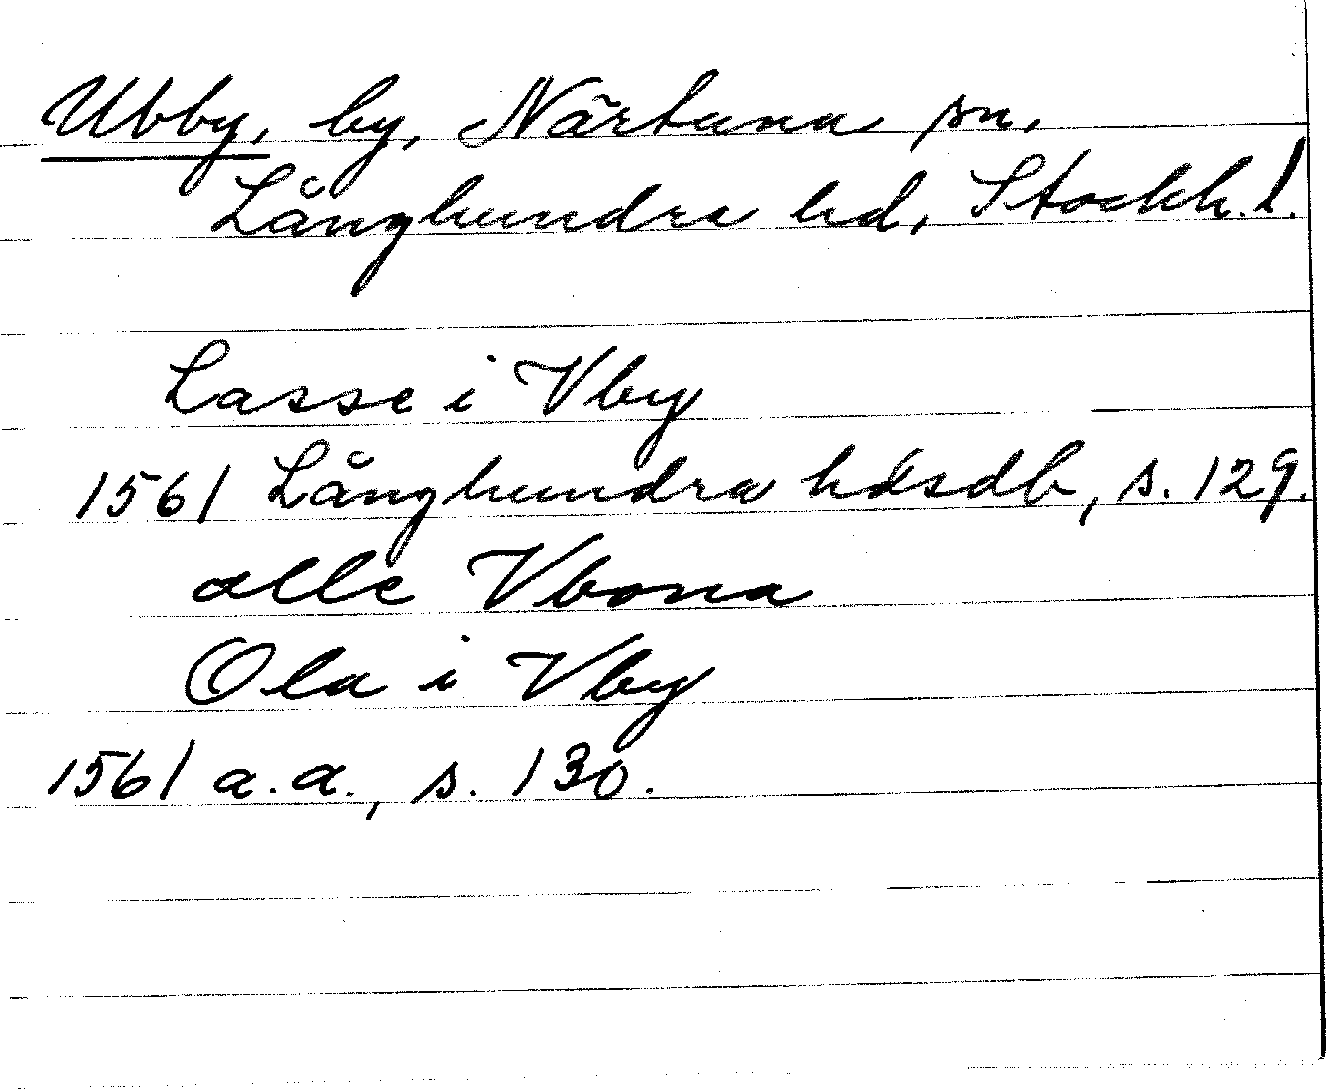 Ubby, by, Närtuna sn.
Långhundra hd, Stockh. l.
Lasse i Vby
1561 Långhundra hdsdb, s. 129.
alle Vbona
Ola i Vby
1561 a.a., s. 130.